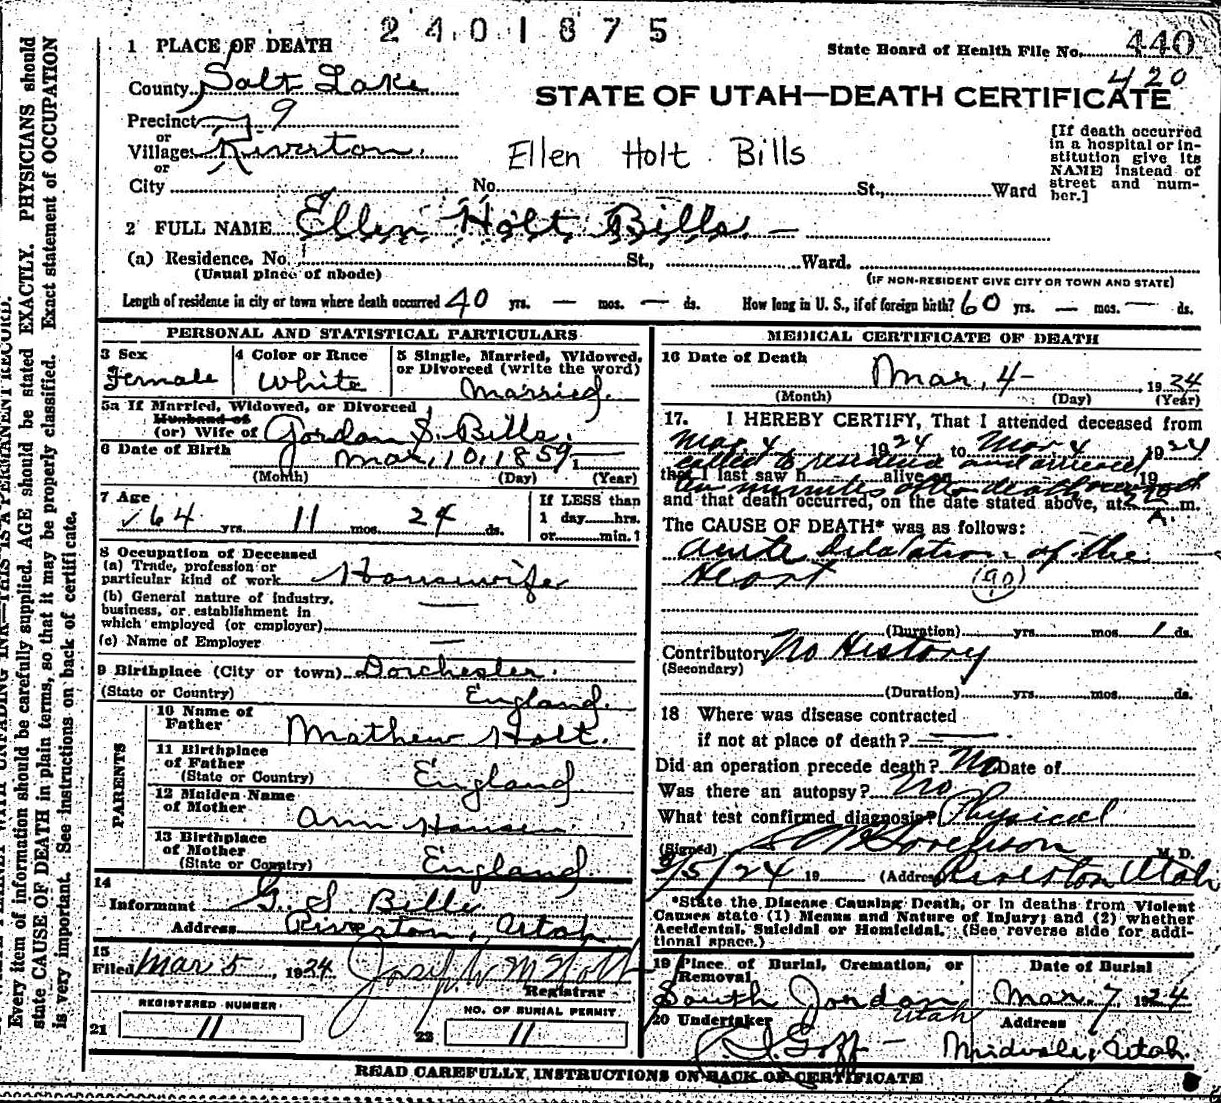 2401875
State Board of Health File No. 440
420
1 PLACE OF DEATH
County Salt Lake
STATE OF UTAH—DEATH CERTIFICATE
Precinct 9
or
Village Riverton.
or
Ellen Holt Bills
[If death occurred
in a hospital or in-
stitution give its
NAME instead of
street and num-
ber.]
City No. St., Ward
2 FULL NAME Ellen Holt Bills.
(a) Residence, No. St., Ward.
(Usual place of abode) (IF NON-RESIDENT GIVE CITY OR TOWN AND STATE)
Length of residence in city or town where death occurred 40 yrs. — mos. — ds. How long in U. S., if of foreign birth? 60 yrs. — mos. — ds.
PERSONAL AND STATISTICAL PARTICULARS
3 Sex
Female
4 Color or Race
White
5 Single, Married, Widowed,
or Divorced (write the word)
Married.
5a If Married, Widowed, or Divorced
Husband of
(or) Wife of Gordan S. Bills.
6 Date of Birth Mar. 10, 1859
(Month) (Day) (Year)
7 Age
64 yrs. 11 mos. 24 ds.
If LESS than
1 day hrs.
or min.?
8 Occupation of Deceased
(a) Trade, profession or
particular kind of work Housewife
(b) General nature of industry,
business, or establishment in
which employed (or employer)
(c) Name of Employer —
9 Birthplace (City or town) Dorchester.
(State or Country) England.
PARENTS
10 Name of
Father Mathew Holt.
11 Birthplace
of Father
(State or Country) England
12 Maiden Name
of Mother Ann Hansen
13 Birthplace
of Mother
(State or Country) England
14
Informant G. S. Bills
Address Riverton, Utah
15
Filed Mar 5, 1924
Registrar
REGISTERED NUMBER
21 11
NO. OF BURIAL PERMIT
22 11
MEDICAL CERTIFICATE OF DEATH
16 Date of Death
Mar. 4 1924
(Month) (Day) (Year)
17. I HEREBY CERTIFY, That I attended deceased from
Mar 4 1924 to Mar 4 1924
called to residence and arrived
that I last saw h alive on 19
and that death occurred, on the date stated above, at m.
The CAUSE OF DEATH* was as follows:
Acute Dilatation of the
Heart (90)
(Duration) yrs. mos. 1 ds.
Contributory No History
(Secondary)
(Duration) yrs. mos. ds.
18 Where was disease contracted
if not at place of death? —
Did an operation precede death? No Date of
Was there an autopsy? No
What test confirmed diagnosis? Physical
(Signed) Sorenson M. D.
3/5/24 19 (Address) Riverton Utah
*State the Disease Causing Death, or in deaths from Violent
Causes state (1) Means and Nature of Injury; and (2) whether
Accidental, Suicidal or Homicidal. (See reverse side for addi-
tional space.)
19 Place of Burial, Cremation, or
Removal
South Jordan
Utah
Date of Burial
Mar. 7 1924
20 Undertaker
Goff
Address
Midvale, Utah.
READ CAREFULLY, INSTRUCTIONS ON BACK OF CERTIFICATE
Every item of information should be carefully supplied. AGE should be stated EXACTLY. PHYSICIANS should
state CAUSE OF DEATH in plain terms, so that it may be properly classified. Exact statement of OCCUPATION
is very important. See instructions on back of certificate.